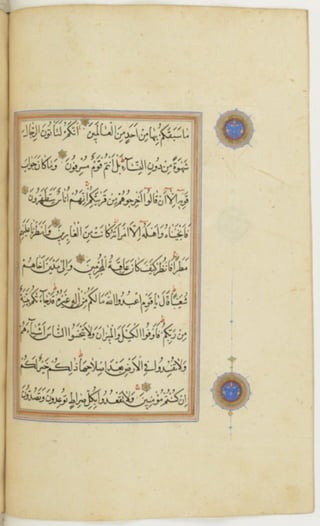 مَا سَبَقَكُمْ بِهَا مِنْ اَحَدٍ مِنَ الْعَالَمِينَ اِنَّكُمْ لَتَأْتُونَ الرِّجَالَ
شَهْوَةً مِنْ دُونِ النِّسَاءِ بَلْ اَنْتُمْ قَوْمٌ مُسْرِفُونَ وَمَا كَانَ جَوَابَ
قَوْمِهِ اِلَّا اَنْ قَالُوا اَخْرِجُوهُمْ مِنْ قَرْيَتِكُمْ اِنَّهُمْ اُنَاسٌ يَتَطَهَّرُونَ
فَاَنْجَيْنَاهُ وَاَهْلَهُ اِلَّا امْرَاَتَهُ كَانَتْ مِنَ الْغَابِرِينَ وَاَمْطَرْنَا عَلَيْهِمْ
مَطَرًا فَانْظُرْ كَيْفَ كَانَ عَاقِبَةُ الْمُجْرِمِينَ وَاِلَى مَدْيَنَ اَخَاهُمْ
شُعَيْبًا قَالَ يَا قَوْمِ اعْبُدُوا اللهَ مَا لَكُمْ مِنْ اِلَهٍ غَيْرُهُ قَدْ جَاءَتْكُمْ بَيِّنَةٌ
مِنْ رَبِّكُمْ فَاَوْفُوا الْكَيْلَ وَالْمِيزَانَ وَلَا تَبْخَسُوا النَّاسَ اَشْيَاءَهُمْ
وَلَا تُفْسِدُوا فِي الْاَرْضِ بَعْدَ اِصْلَاحِهَا ذَلِكُمْ خَيْرٌ لَكُمْ
اِنْ كُنْتُمْ مُؤْمِنِينَ وَلَا تَقْعُدُوا بِكُلِّ صِرَاطٍ تُوعِدُونَ وَتَصُدُّونَ